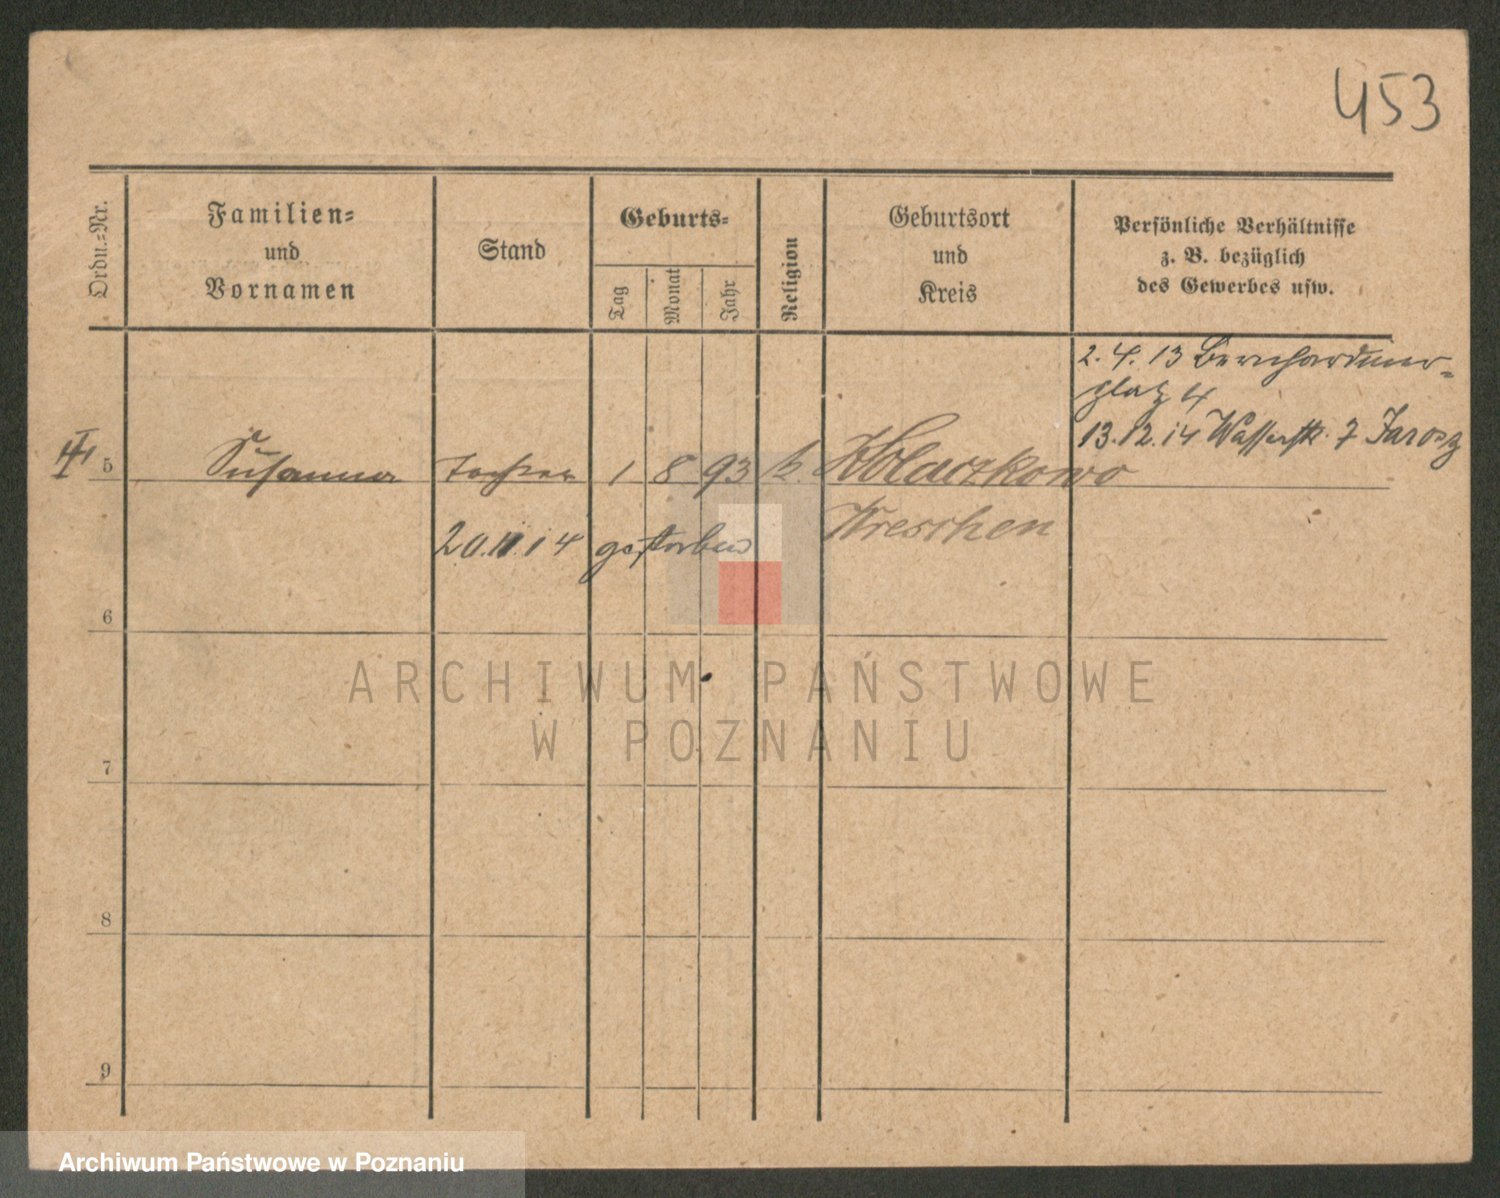 453
Ordn.=Nr.
Familien=
und
Vornamen
Stand
Geburts=
Tag
Monat
Jahr
Religion
Geburtsort
und
Kreis
Persönliche Verhältnisse
z. B. bezüglich
des Gewerbes usw.
2. 4. 13 Bernhardiner=
platz 4
13.12.14 Wasserstr. 7 Jarosz
III 5 Susanna Tochter 1 8 93 k. Kolaczkowo
Wreschen
20.11.14 gestorben
6
7
8
9
ARCHIWUM PAŃSTWOWE
W POZNANIU
Archiwum Państwowe w Poznaniu